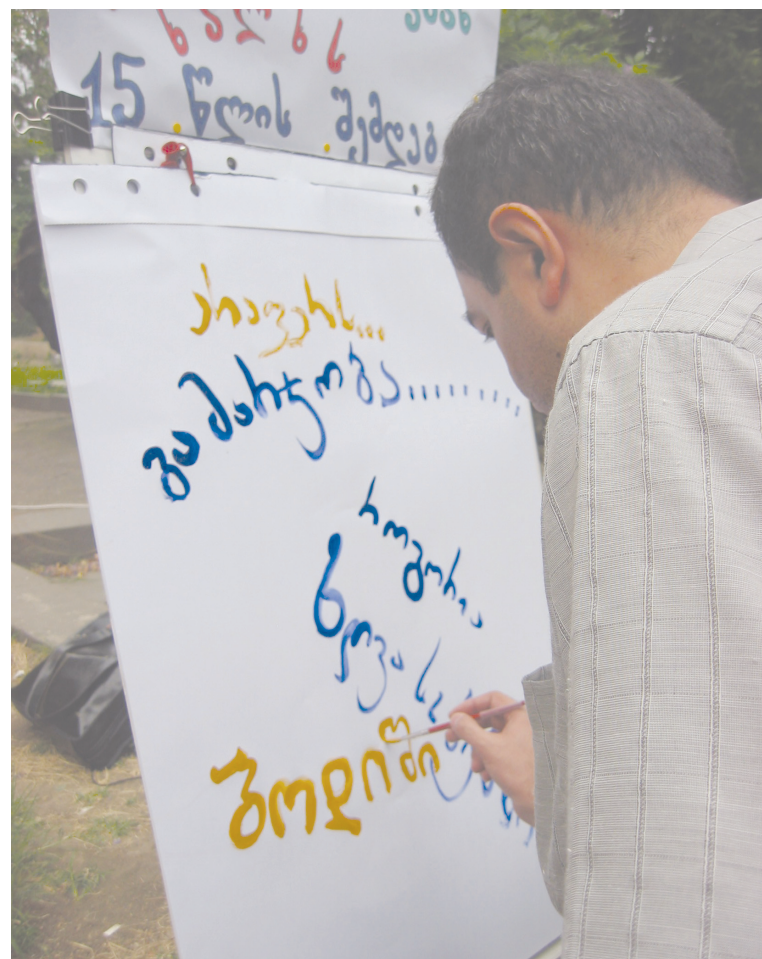 15 წლის შემდეგ
არაფერს...
გამარჯობა..........
როგორია
ზღვა
ბოდიში